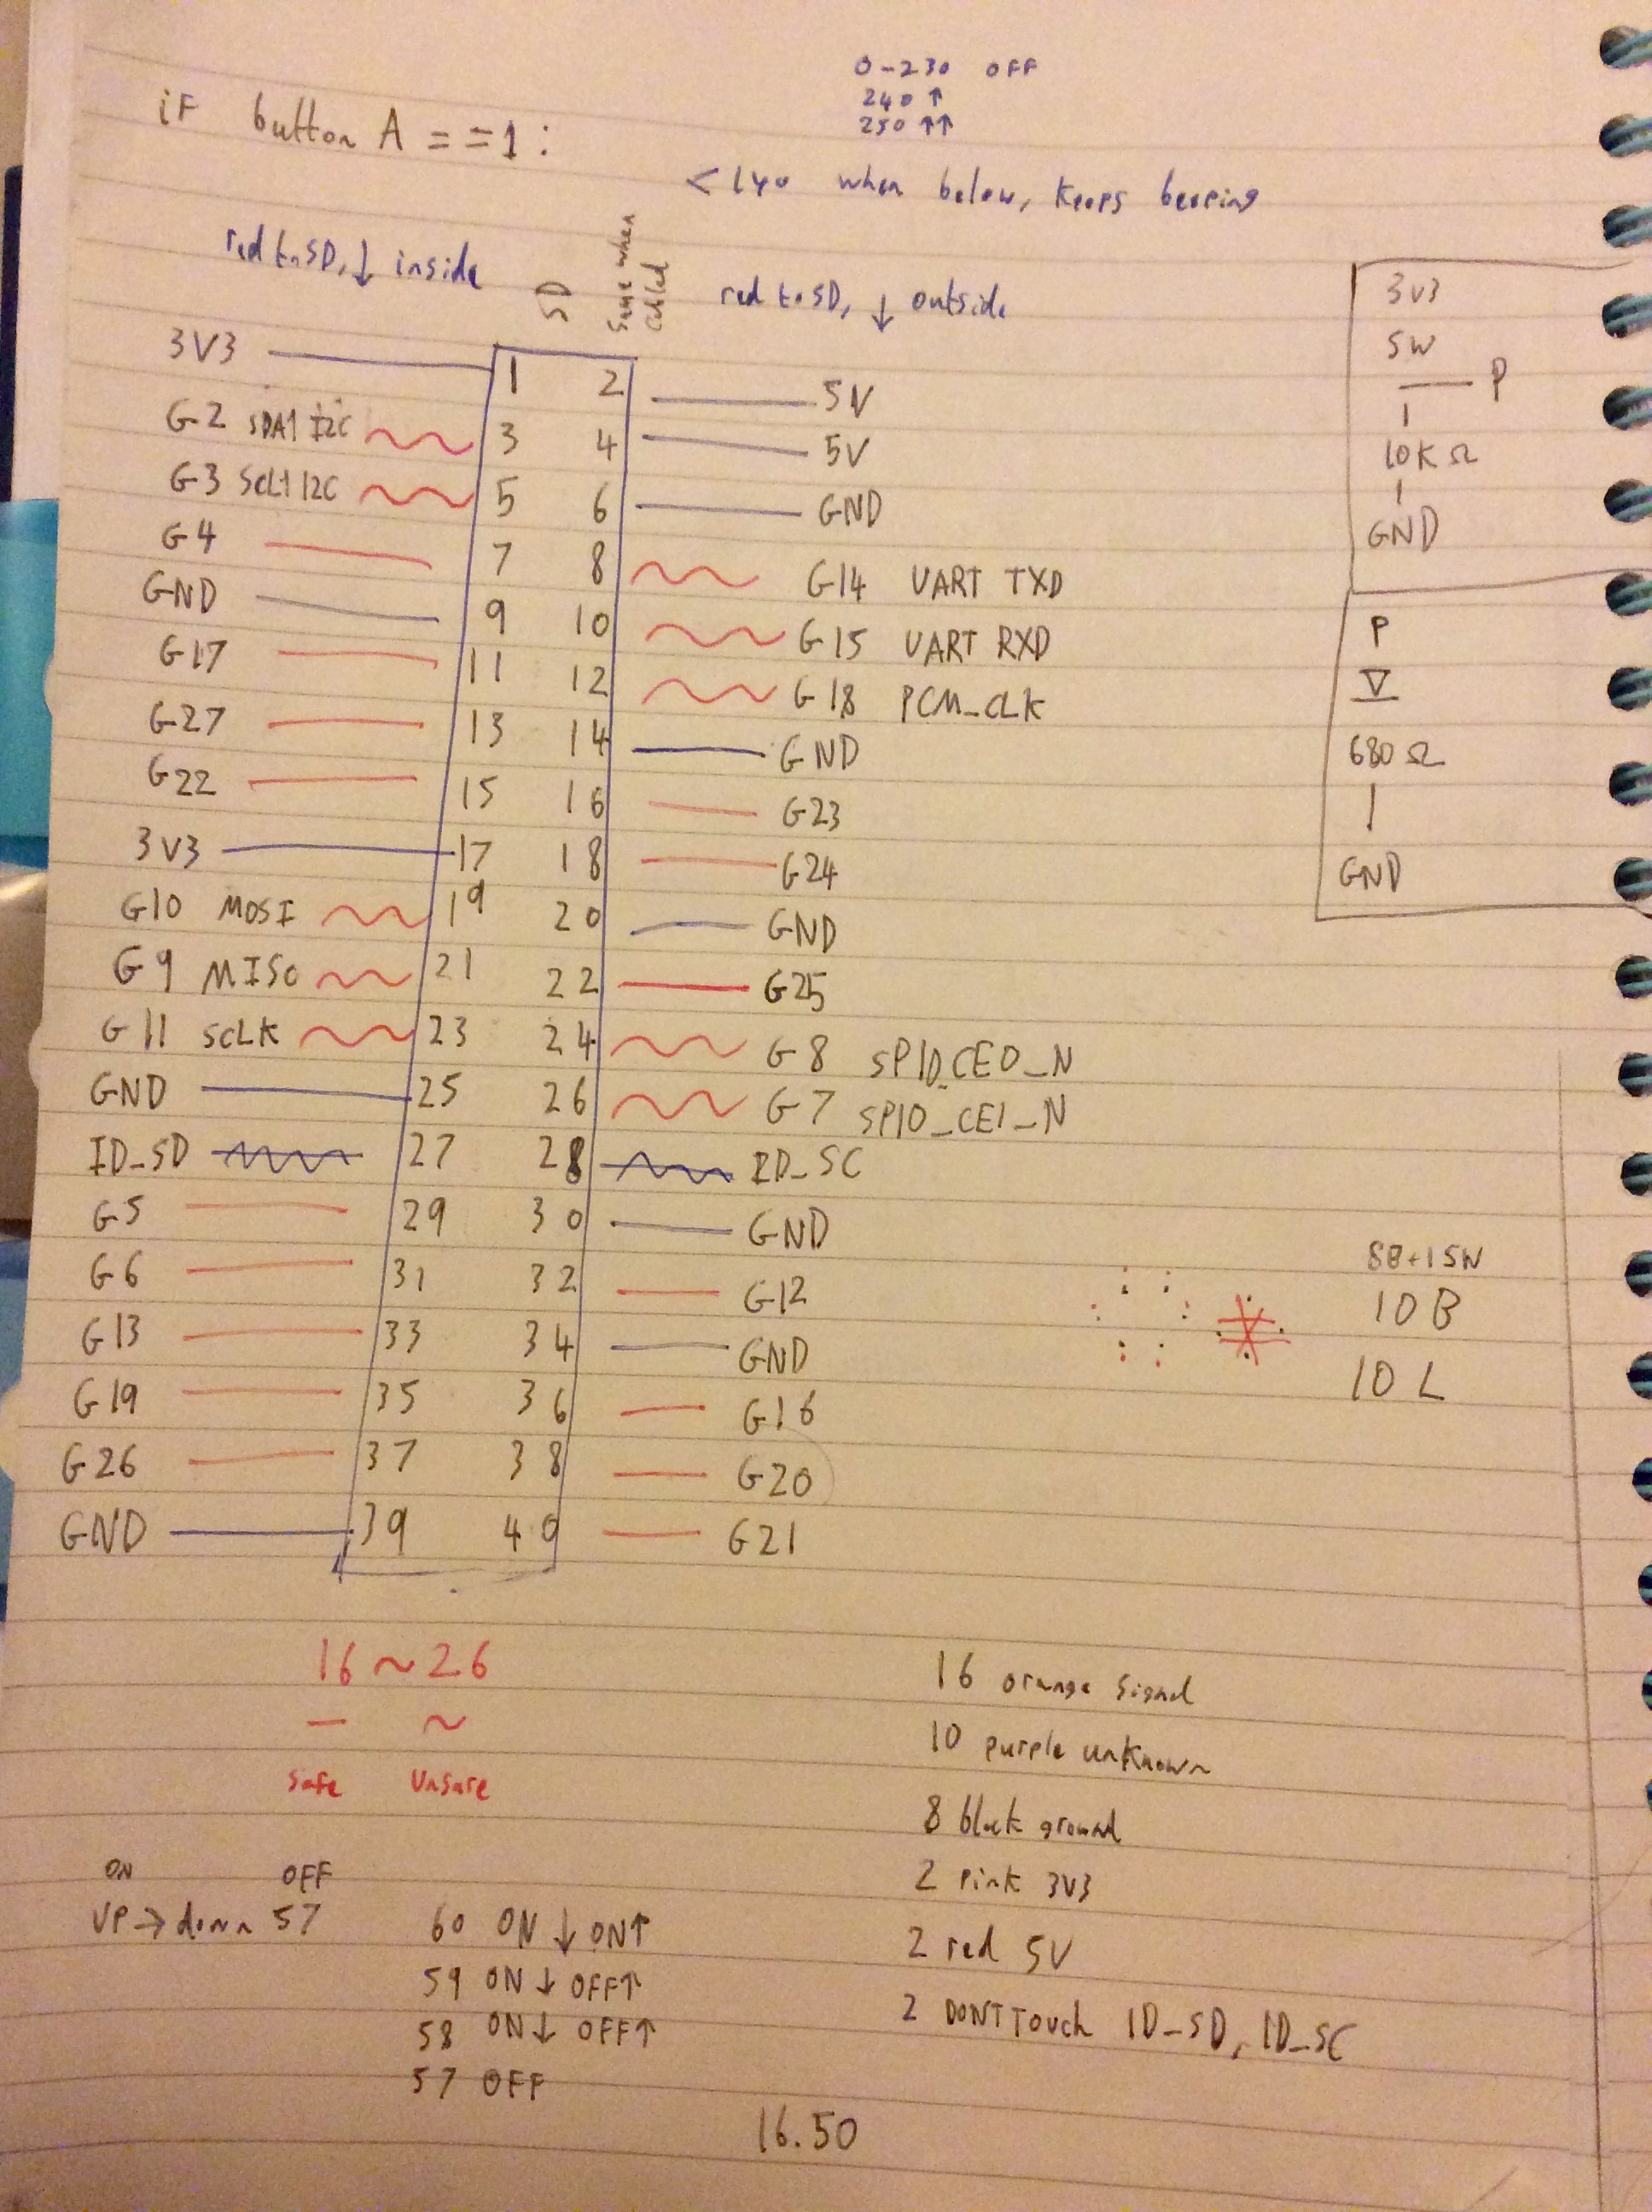 0-230 OFF
240 ↑
250 ↑↑
if button A == 1:
<140 when below, keeps beeping
red to SD, ↓ inside
SD
Same when
cabled
red to SD, ↓ outside
3V3 1 2 5V
G2 SDA1 I2C 3 4 5V
G3 SCL1 I2C 5 6 GND
G4 7 8 G14 UART TXD
GND 9 10 G15 UART RXD
G17 11 12 G18 PCM_CLK
G27 13 14 GND
G22 15 16 G23
3V3 17 18 G24
G10 MOSI 19 20 GND
G9 MISO 21 22 G25
G11 SCLK 23 24 G8 SPI0_CE0_N
GND 25 26 G7 SPI0_CE1_N
ID_SD 27 28 ID_SC
G5 29 30 GND
G6 31 32 G12
G13 33 34 GND
G19 35 36 G16
G26 37 38 G20
GND 39 40 G21
3V3
SW
P
10KΩ
GND
P
680Ω
GND
10B
10L
16 ~ 26
— ~
Safe Unsure
ON OFF
UP → down 57
60 ON ↓ ON↑
59 ON ↓ OFF↑
58 ON ↓ OFF↑
57 OFF
16 orange signal
10 purple unknown
8 black ground
2 Pink 3V3
2 red 5V
2 DONT Touch ID_SD, ID_SC
16.50